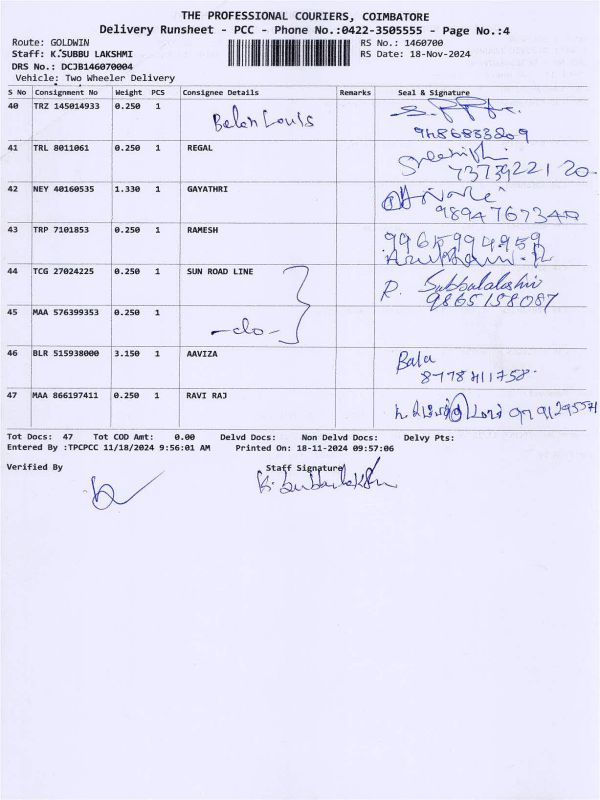 THE PROFESSIONAL COURIERS, COIMBATORE
Delivery Runsheet - PCC - Phone No.:0422-3505555 - Page No.:4
Route: GOLDWIN
RS No.: 1460700
Staff: K.SUBBU LAKSHMI
RS Date: 18-Nov-2024
DRS No.: DCJB146070004
Vehicle: Two Wheeler Delivery
S No Consignment No Weight PCS Consignee Details Remarks Seal & Signature
40 TRZ 145014933 0.250 1 Belan Louis
9486833809
41 TRL 8011061 0.250 1 REGAL
7373922120
42 NEY 40160535 1.330 1 GAYATHRI
9894767340
43 TRP 7101853 0.250 1 RAMESH 9965994959
44 TCG 27024225 0.250 1 SUN ROAD LINE R. Subbulakshmi
9865158087
45 MAA 576399353 0.250 1 -do-
46 BLR 515938000 3.150 1 AAVIZA Bala
8778411758
47 MAA 866197411 0.250 1 RAVI RAJ
Tot Docs: 47 Tot COD Amt: 0.00 Delvd Docs: Non Delvd Docs: Delvy Pts:
Entered By :TPCPCC 11/18/2024 9:56:01 AM Printed On: 18-11-2024 09:57:06
Verified By Staff Signature
K. Subbulakshmi